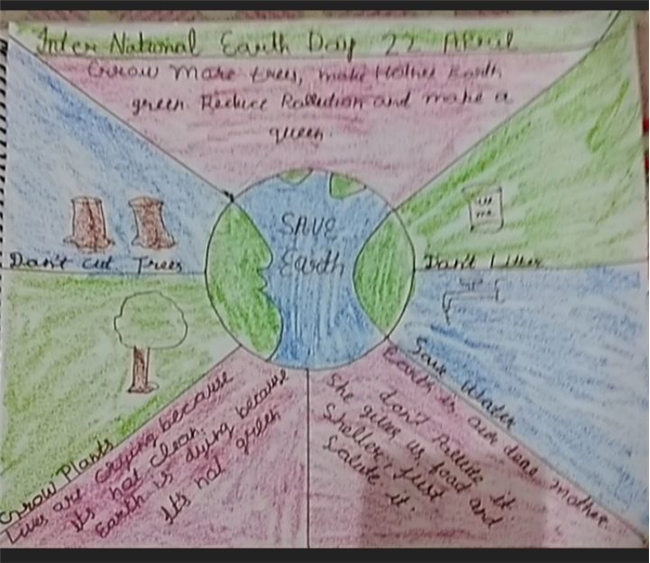 Inter National Earth Day 22 April
Grow more trees, make Mother Earth
green Reduce Pollution and make a
queen.
SAVE
Earth
Don't cut Trees
Don't Litter
Save Water
Grow Plants
Lives are crying because
it's not clean,
Earth is dying because
It's not green
Earth is our dear mother
don't Pollute it
She gives us food and
Shelter, Just
Salute it.